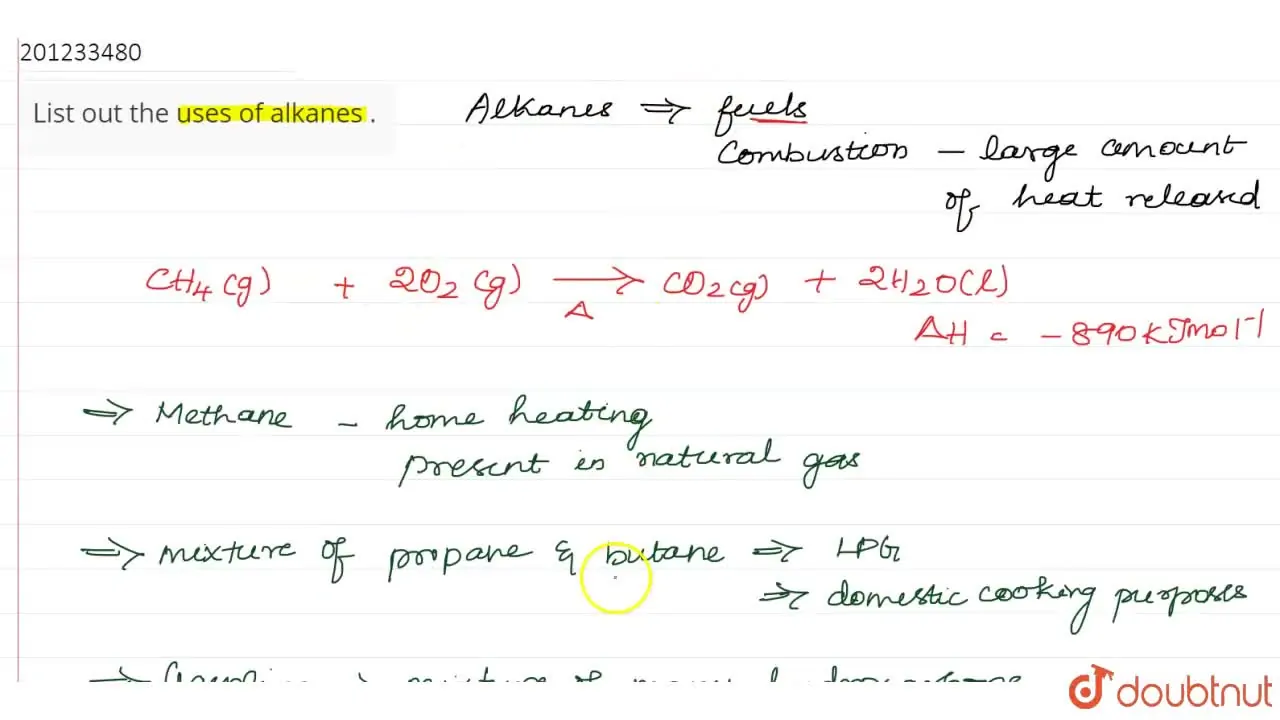 201233480
List out the uses of alkanes .
Alkanes ⇒ fuels
Combustion – large amount
of heat released
CH4(g) + 2O2(g) ⟶ CO2(g) + 2H2O(l)
Δ
ΔH = -890KJmol-1
⇒ Methane – home heating
present in natural gas
⇒ mixture of propane & butane ⇒ LPG
⇒ domestic cooking purposes
mixture of many hydrocarbons
doubtnut